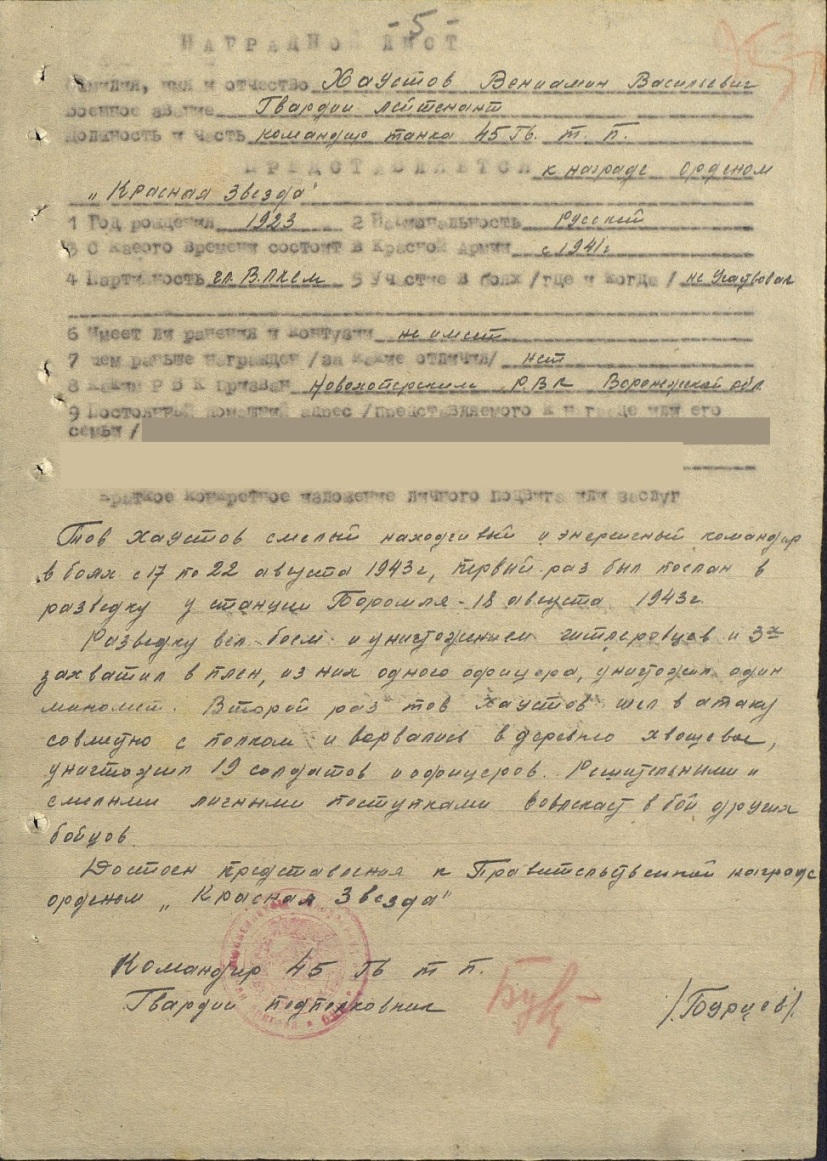 - 5 -
НАГРАДНОЙ ЛИСТ
Фамилия, имя и отчество Хаустов Вениамин Васильевич
Военное звание Гвардии лейтенант
Должность и часть командир танка 45 Гв. т. п.
ПРЕДСТАВЛЯЕТСЯ к награде орденом
„Красная Звезда"
1 Год рождения 1923 2 Национальность Русский
3 С какого времени состоит в Красной Армии с 1941г
4 Партийность чл. ВЛКСМ 5 Участие в боях /где и когда/ не участвовал
6 Имеет ли ранения и контузии не имеет
7 чем раньше награжден /за какие отличия/ нет
8 каким Р В К призван Новохоперским РВК Воронежской обл.
9 Постоянный домашний адрес /представляемого к награде или его
семьи /
Краткое конкретное изложение личного подвига или заслуг
Тов Хаустов смелый находчивый и энергисный командир
в боях с 17 по 22 августа 1943г, первый раз был послан в
разведку у станции Боромля - 18 августа 1943г.
Разведку вел боем и унистожением гитлеровцев и 3х
захватил в плен, из них одного офицера, унистожил один
миномет. Второй раз тов Хаустов шел в атаку
совместно с полком и ворвались в деревню
уничтожил 19 солдатов и офицеров. Решительными и
смелыми личными поступками вовлекает в бой других
бойцов.
Достоен представления к Правительственной награде
орденом „Красная Звезда"
Командир 45 Гв т п.
Гвардии подполковник /Бурцев/.